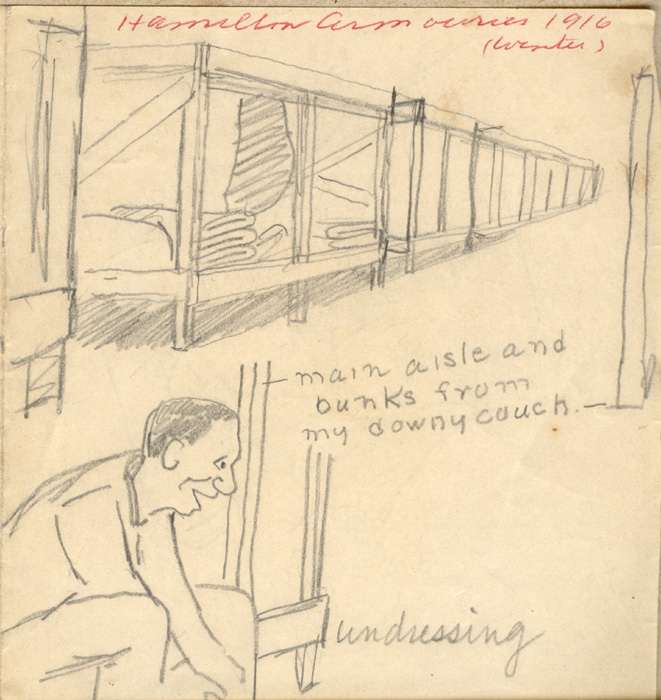 Hamilton Armouries 1916
(Winter)
main aisle and
bunks from
my downy couch.
undressing